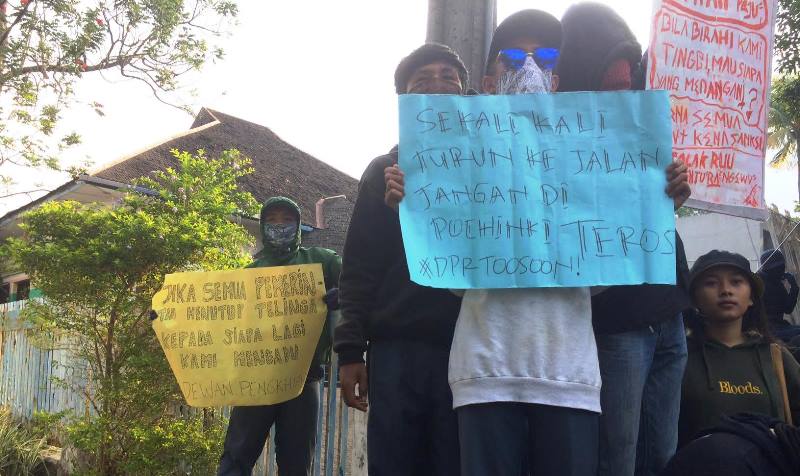 JIKA SEMUA PEMERIN-
TAH MENUTUP TELINGA
KEPADA SIAPA LAGI
KAMI MENGADU
DEWAN PENGKHI
SEKALI KALI
TURUN KE JALAN
JANGAN DI
POCHINKI TEROS
#DPRTOOSOON!
BILA BIRAHI KAMI
TINGGI, MAU SIAPA
YANG MENANGANI?
SEMUA
KENA SANKSI
RUU
Bloods.